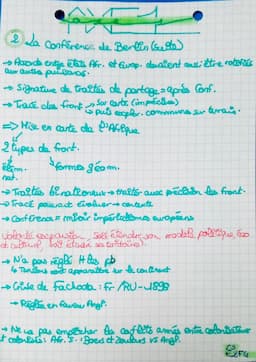 ② La Conférence de Berlin (suite)
→ Accords entre États Afr. et Europ. devaient aussi être ratifiés
aux autres puissances.
→ Signature de traités de partage = après Conf.
→ Tracé des front. → sur carte (imprécises)
→ puis explor. communes sur terrain.
=> Mise en carte de l'Afrique
2 types de front.
élém. nat.
formes géom.
→ Traités binationaux → traités avec précision des front.
→ Tracé pouvant évoluer → contexte
→ Conférence = miroir impérialismes européens
Volonté expansion, soit étendre son modèle politique, éco
et culturel, soit étendre ses territoires.
→ N'a pas réglé tous les pb
4 tensions vont apparaître sur le continent
→ Crise de Fachoda : Fr / RU - 1898
→ Réglée en faveur Angl.
→ Ne va pas empêcher les conflits armés entre colonisateurs
et colonisés Afr. S. : Boers et Zoulous vs Angl.